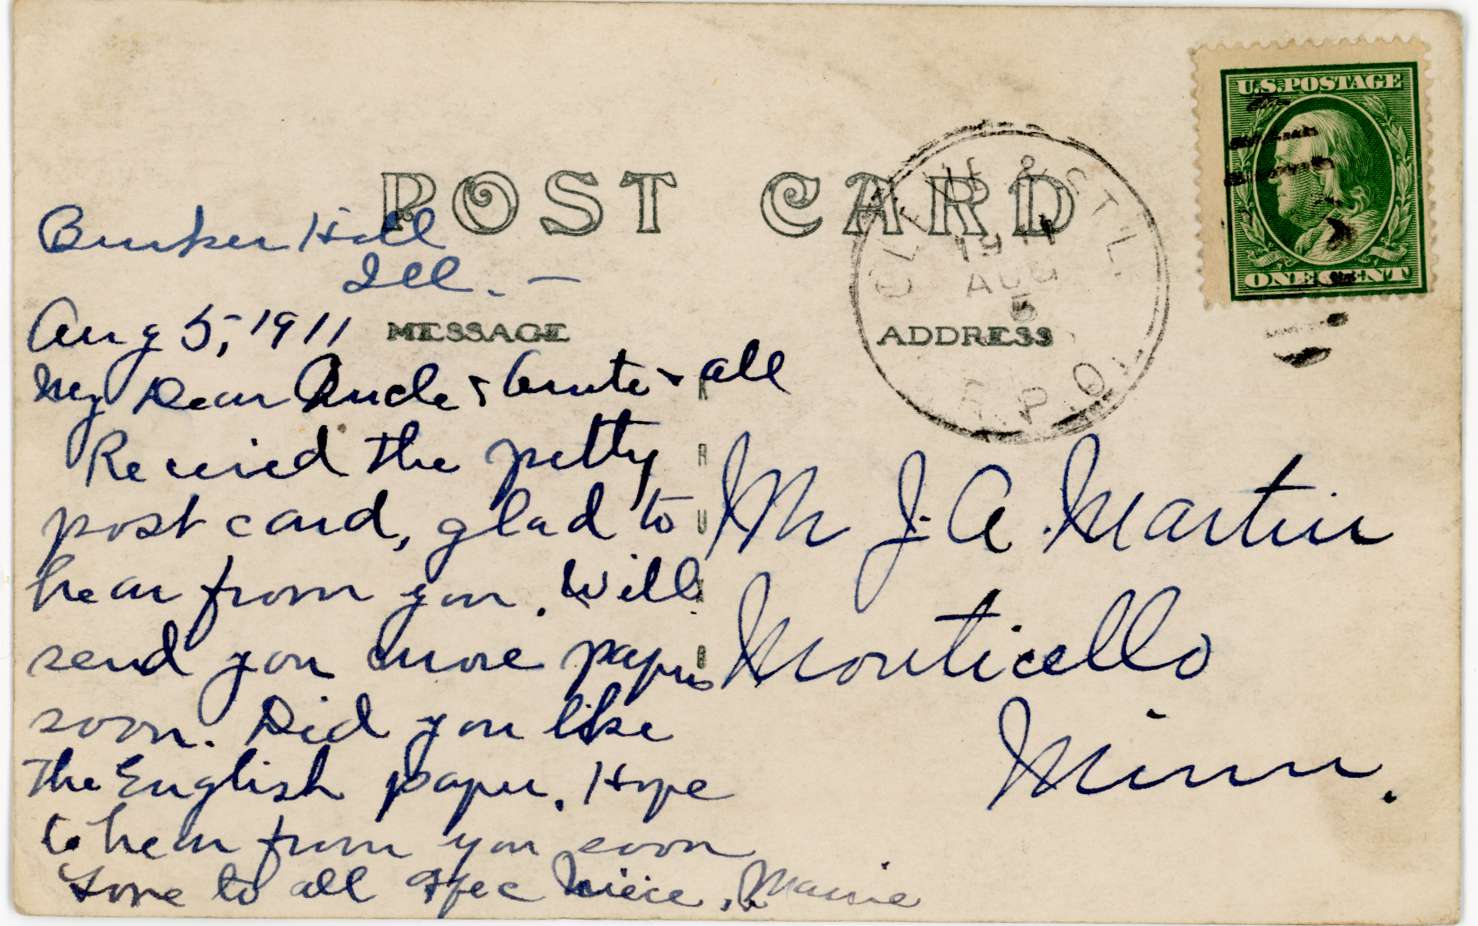 U.S. POSTAGE
ONE CENT
POST CARD
CLEVE & ST. L.
1911
AUG
5
R.P.O.
MESSAGE
ADDRESS
Bunker Hill
Ill. –
Aug 5, 1911
My Dear Uncle & Aunte & all
Recieved the petty
post card, glad to
hear from you. Will
send you more papers
soon. Did you like
the English paper. Hope
to hear from you soon
Love to all Niece, Mamie
Mr J. A. Martin
Monticello
Minn.